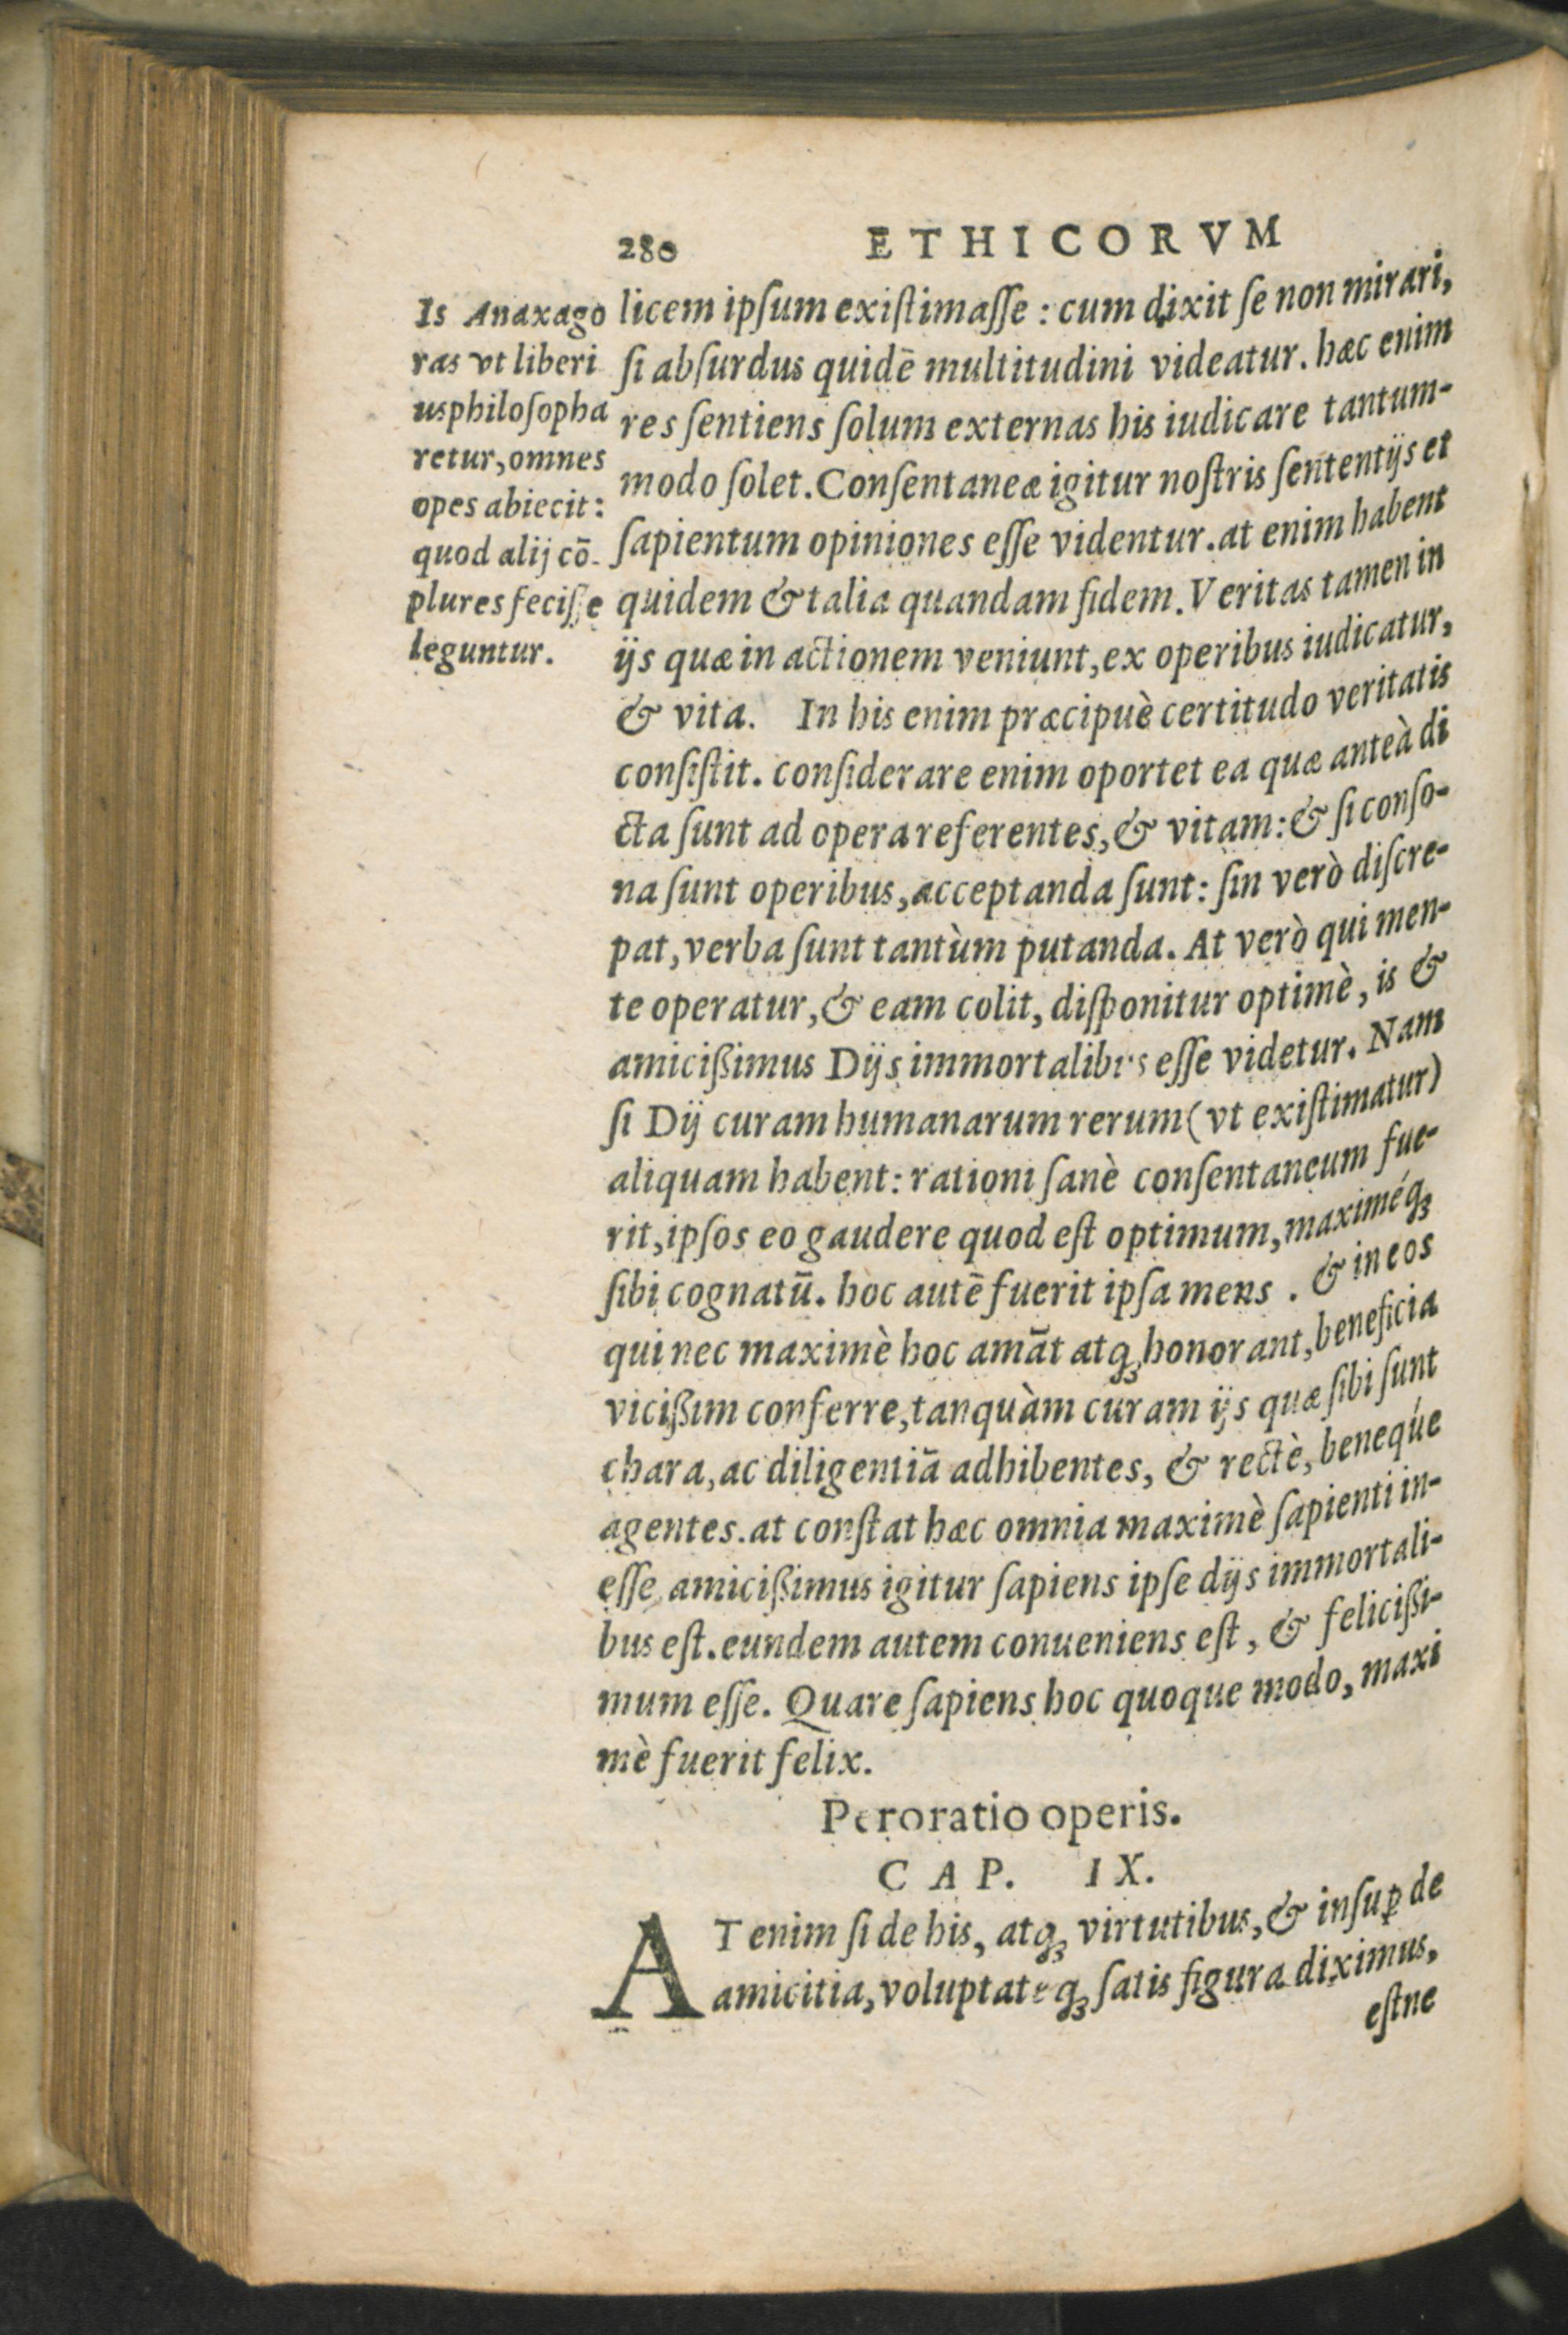 280 ETHICORVM
Is Anaxago
ras vt liberi
usphilosopha
retur, omnes
opes abiecit:
quod alij cõ-
plures fecisse
leguntur.
licem ipsum existimasse : cum dixit se non mirari,
si absurdus quidẽ multitudini videatur. hæc enim
res sentiens solum externas his iudicare tantum-
modo solet. Consentaneæ igitur nostris sententijs et
sapientum opiniones esse videntur. at enim habent
quidem & talia quandam fidem. Veritas tamen in
ijs quæ in actionem veniunt, ex operibus iudicatur,
& vita. In his enim præcipuè certitudo veritatis
consistit. considerare enim oportet ea quæ anteà di
cta sunt ad opera referentes, & vitam: & si conso-
na sunt operibus, acceptanda sunt: sin verò discre-
pat, verba sunt tantùm putanda. At verò qui men-
te operatur, & eam colit, disponitur optimè, is &
amicißimus Dijs immortalibus esse videtur. Nam
si Dij curam humanarum rerum (vt existimatur)
aliquam habent: rationi sanè consentaneum fue-
rit, ipsos eo gaudere quod est optimum, maximéq;
sibi cognatũ. hoc autẽ fuerit ipsa mens . & in eos
qui nec maximè hoc amãt atq; honorant, beneficia
vicißim conferre, tanquàm curam ijs quæ sibi sunt
chara, ac diligentiã adhibentes, & rectè, beneqúe
agentes. at constat hæc omnia maximè sapienti in-
esse, amicißimus igitur sapiens ipse dijs immortali-
bus est. eundem autem conueniens est, & felicißi-
mum esse. Quare sapiens hoc quoque modo, maxi
mè fuerit felix.
Peroratio operis.
CAP. IX.
AT enim si de his, atq; virtutibus, & insuꝑ de
amicitia, voluptateq; satis figura diximus,
estne